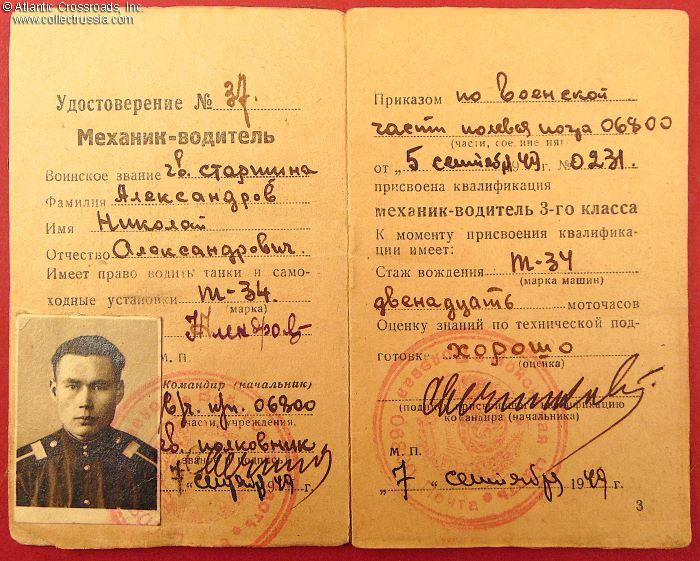 © Atlantic Crossroads, Inc.
www.collectrussia.com
Удостоверение № 37.
Механик-водитель
Воинское звание гв. старшина
Фамилия Александров
Имя Николай
Отчество Александрович.
Имеет право водить танки и само-
ходные установки т-34.
(марка)
М. П.
Командир (начальник)
в/ч. п/п. 06800
части, учреждения,
гв. полковник
„7" сентября 1949 г.
Приказом по Военской
части полевая почта 06800
(части, соединения)
от „5 сентября 1949 г. № 0231.
присвоена квалификация
механик-водитель 3-го класса
К моменту присвоения квалифика-
ции имеет:
Стаж вождения т-34
(марка машин)
двенадцать моточасов
Оценку знаний по технической под-
готовке хорошо
(оценка)
командира (начальника)
М. П.
„7" сентября 1949 г.
3